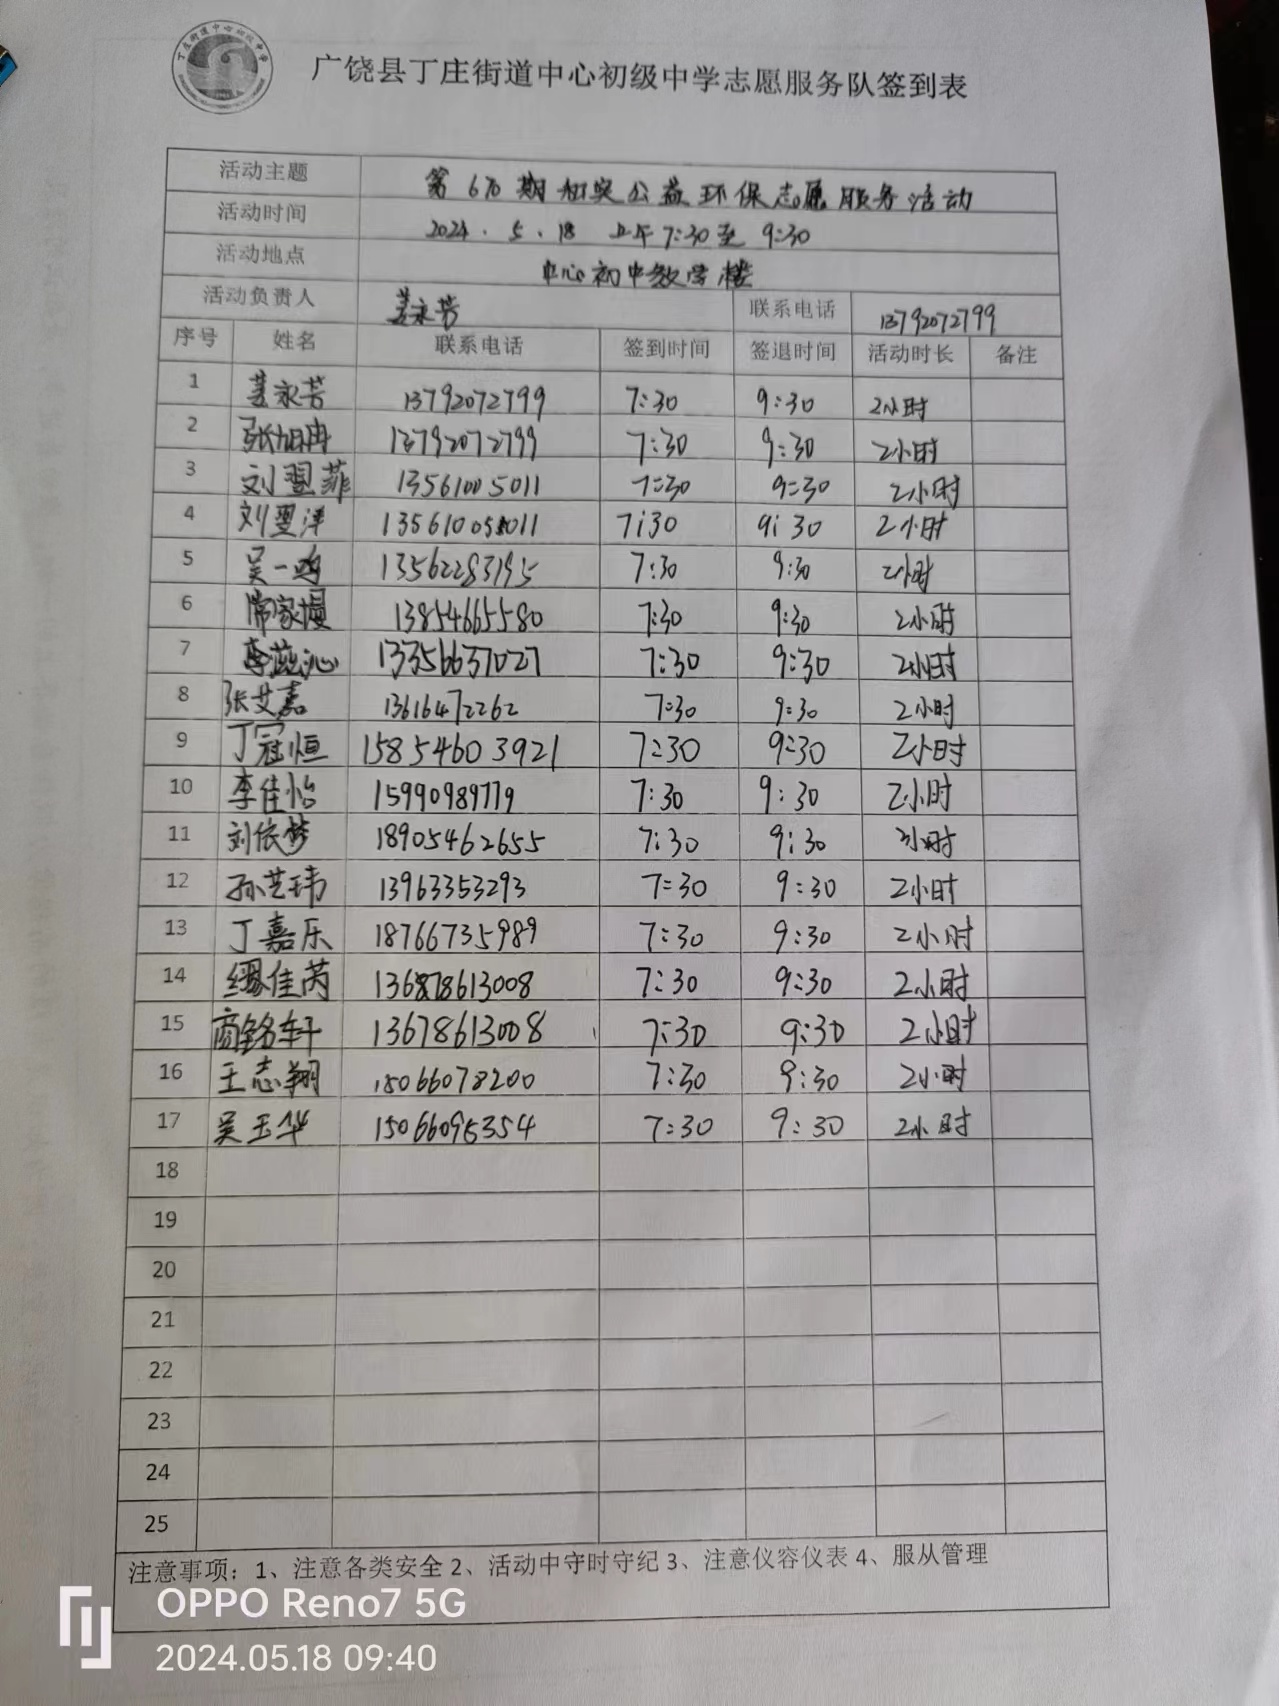 广饶县丁庄街道中心初级中学志愿服务队签到表
活动主题 第670期和奕公益环保志愿服务活动
活动时间 2024.5.18 上午7:30至9:30
活动地点 中心初中教学楼
活动负责人 姜永芳 联系电话 13792072799
序号 姓名 联系电话 签到时间 签退时间 活动时长 备注
1 姜永芳 13792072799 7:30 9:30 2小时
2 张旭冉 13792072799 7:30 9:30 2小时
3 刘翌菲 13561005011 7:30 9:30 2小时
4 刘翌洋 13561005011 7:30 9:30 2小时
5 吴一鸣 13562283195 7:30 9:30 2小时
6 常家慢 13854665580 7:30 9:30 2小时
7 李滋沁 13356637027 7:30 9:30 2小时
8 张艾嘉 13616472262 7:30 9:30 2小时
9 丁冠恒 15854603921 7:30 9:30 2小时
10 李佳怡 15990989779 7:30 9:30 2小时
11 刘依梦 18905462655 7:30 9:30 2小时
12 孙艺玮 13963353293 7:30 9:30 2小时
13 丁嘉乐 18766735989 7:30 9:30 2小时
14 缪佳芮 13678613008 7:30 9:30 2小时
15 商铭轩 13678613008 7:30 9:30 2小时
16 王志翔 15066078200 7:30 9:30 2小时
17 吴玉华 15066095354 7:30 9:30 2小时
18
19
20
21
22
23
24
25
注意事项：1、注意各类安全 2、活动中守时守纪 3、注意仪容仪表 4、服从管理
OPPO Reno7 5G
2024.05.18 09:40